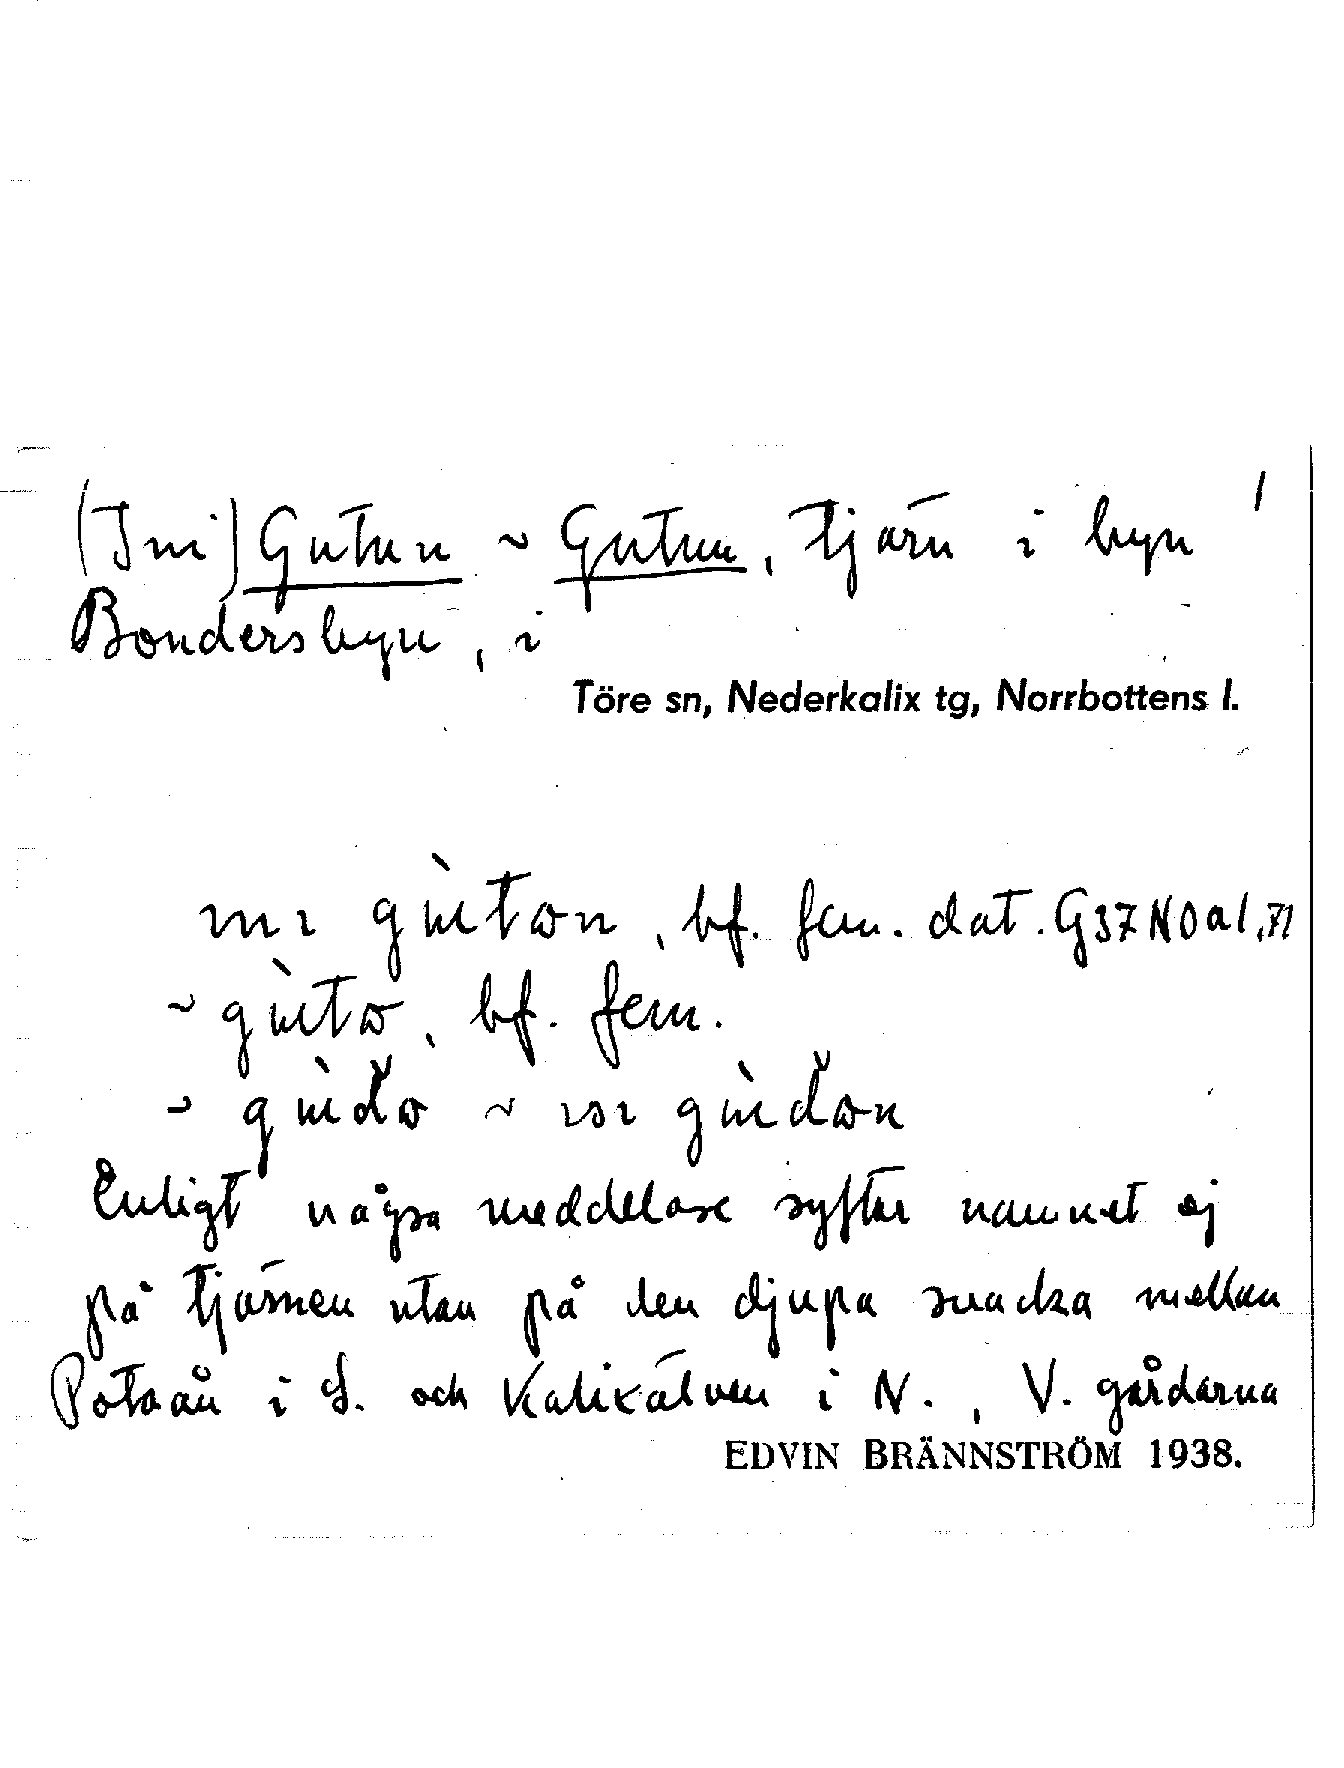 (Ini) Gutun ~ Gutun, tjärn i byn
Bondersbyn, i
Töre sn, Nederkalix tg, Norrbottens l.
bf. fem. dat. G37NOa1,71
~ bf. fem.
Enligt några meddelare syftar namnet ej
på tjärnen utan på den djupa svacka mellan
Potaån i S. och Kalixälven i N., V. gårdarna
EDVIN BRÄNNSTRÖM 1938.